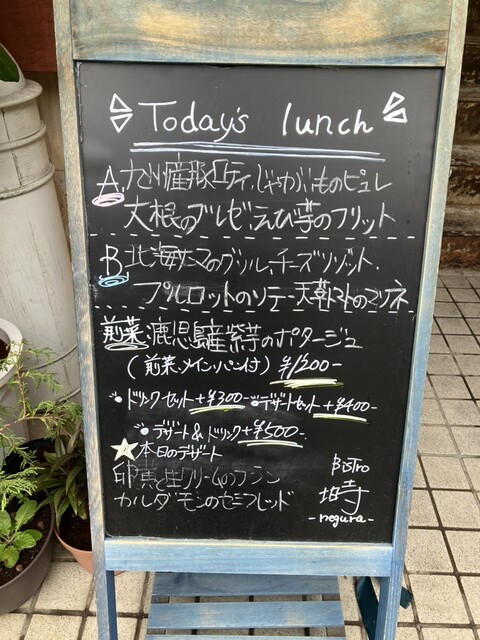 Today's lunch
A. カナダ産豚ロティ、じゃがいものピュレ
大根のブレゼ、えび芋のフリット
B. 北海タコのグリル、チーズリゾット、
プルロットのソテー、天草トマトのマリネ
前菜 鹿児島産紫芋のポタージュ
(前菜、メイン、パン付) ¥1200-
・ドリンクセット+¥300- ・デザートセット+¥400-
・デザート&ドリンク+¥500-
本日のデザート
卵黄と生クリームのフラン
カルダモンのセミフレッド
Bistro
塒
-negura-